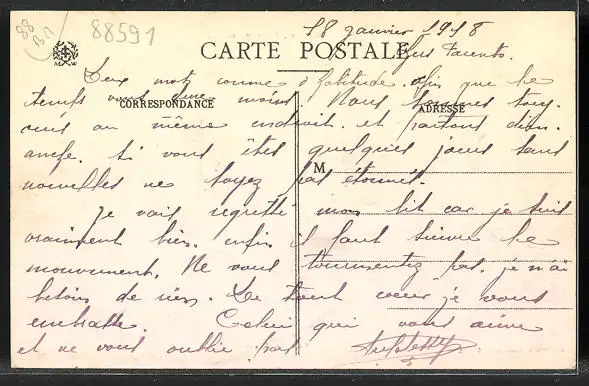 88 BD
88591
18 janvier 1918
CARTE POSTALE
Chers Parents.
M W
Deux mots comme d habitude. afin que le
temps vous dure moins. Nous sommes touj-
CORRESPONDANCE
ADRESSE
ours au même endroit. et partons diman-
anche. si vous êtes quelques jours sans
M
nouvelles ne soyez pas étonnés.
Je vais regretté mon lit car je suis
vraiment bien. enfin il faut suivre le
mouvement. Ne vous tourmentez pas. je n'ai
besoin de rien. De tout cœur je vous
embrasse. Celui qui vous aime
et ne vous oublie pas